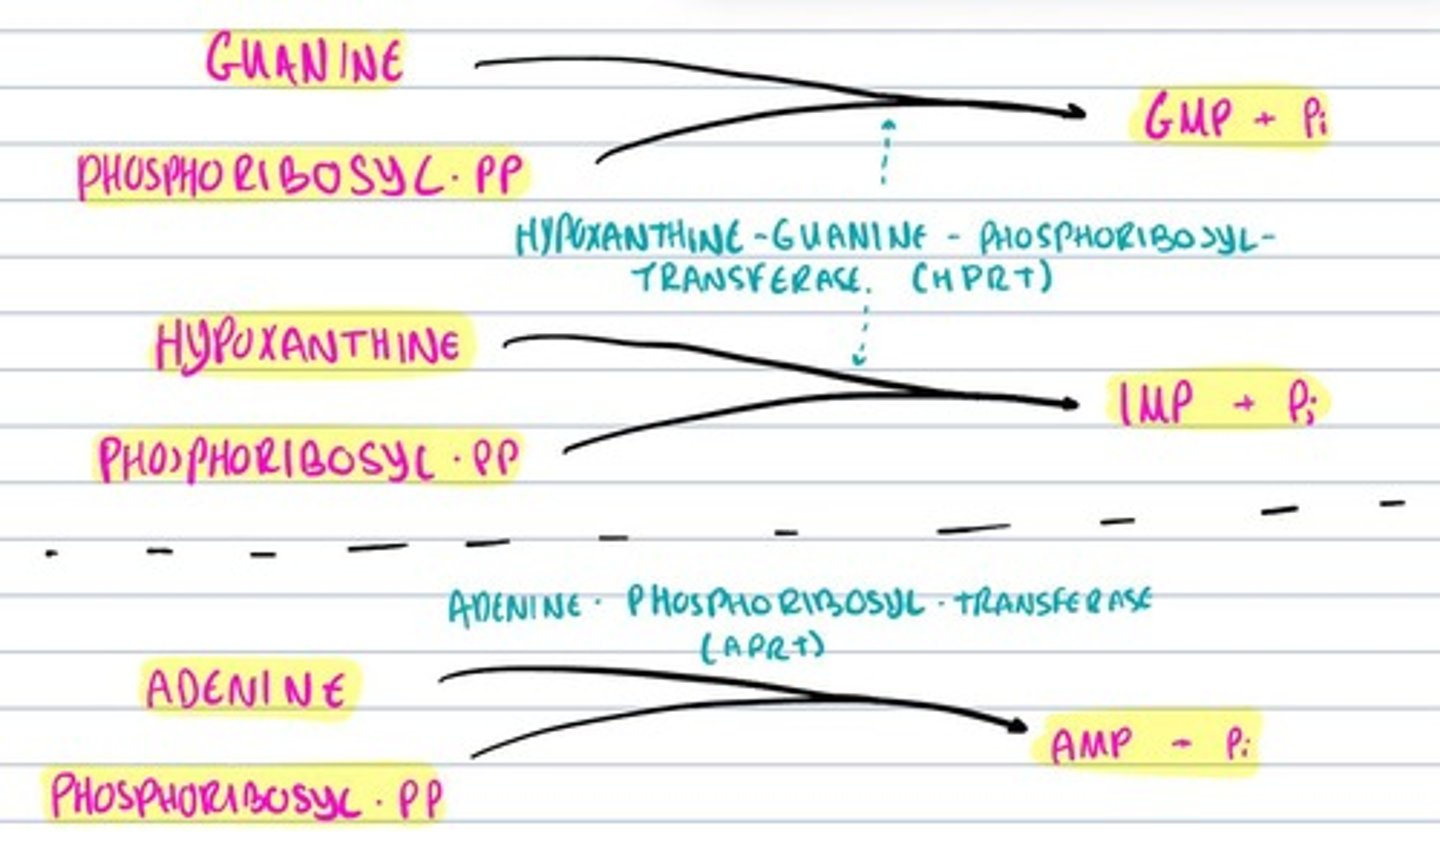 GUANINE
PHOSPHORIBOSYL · PP
GMP + Pi
HYPOXANTHINE - GUANINE - PHOSPHORIBOSYL -
TRANSFERASE. (HPRT)
HYPOXANTHINE
PHOSPHORIBOSYL · PP
IMP + Pi
ADENINE · PHOSPHORIBOSYL · TRANSFERASE
(APRT)
ADENINE
PHOSPHORIBOSYL · PP
AMP - Pi